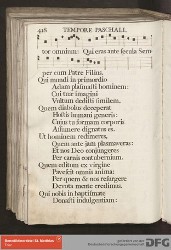 428 TEMPORE PASCHALI.
tor omnium: Qui eras ante sæcula Sem
per cum Patre Filius.
Qui mundi in primordio
Adam plasmasti hominem:
Cui tuæ imagini
Vultum dedisti similem.
Quem diabolus deceperat
Hostis humani generis:
Cujus tu formam corporis
Assumere dignatus es.
Ut hominem redimeres,
Quem ante jam plasmaveras:
Et nos Deo conjungeres
Per carnis contubernium.
Quem editum ex virgine
Pavescit omnis anima:
Per quem & nos resurgere
Devota mente credimus.
Qui nobis in baptismate
Donasti indulgentiam:
DFG